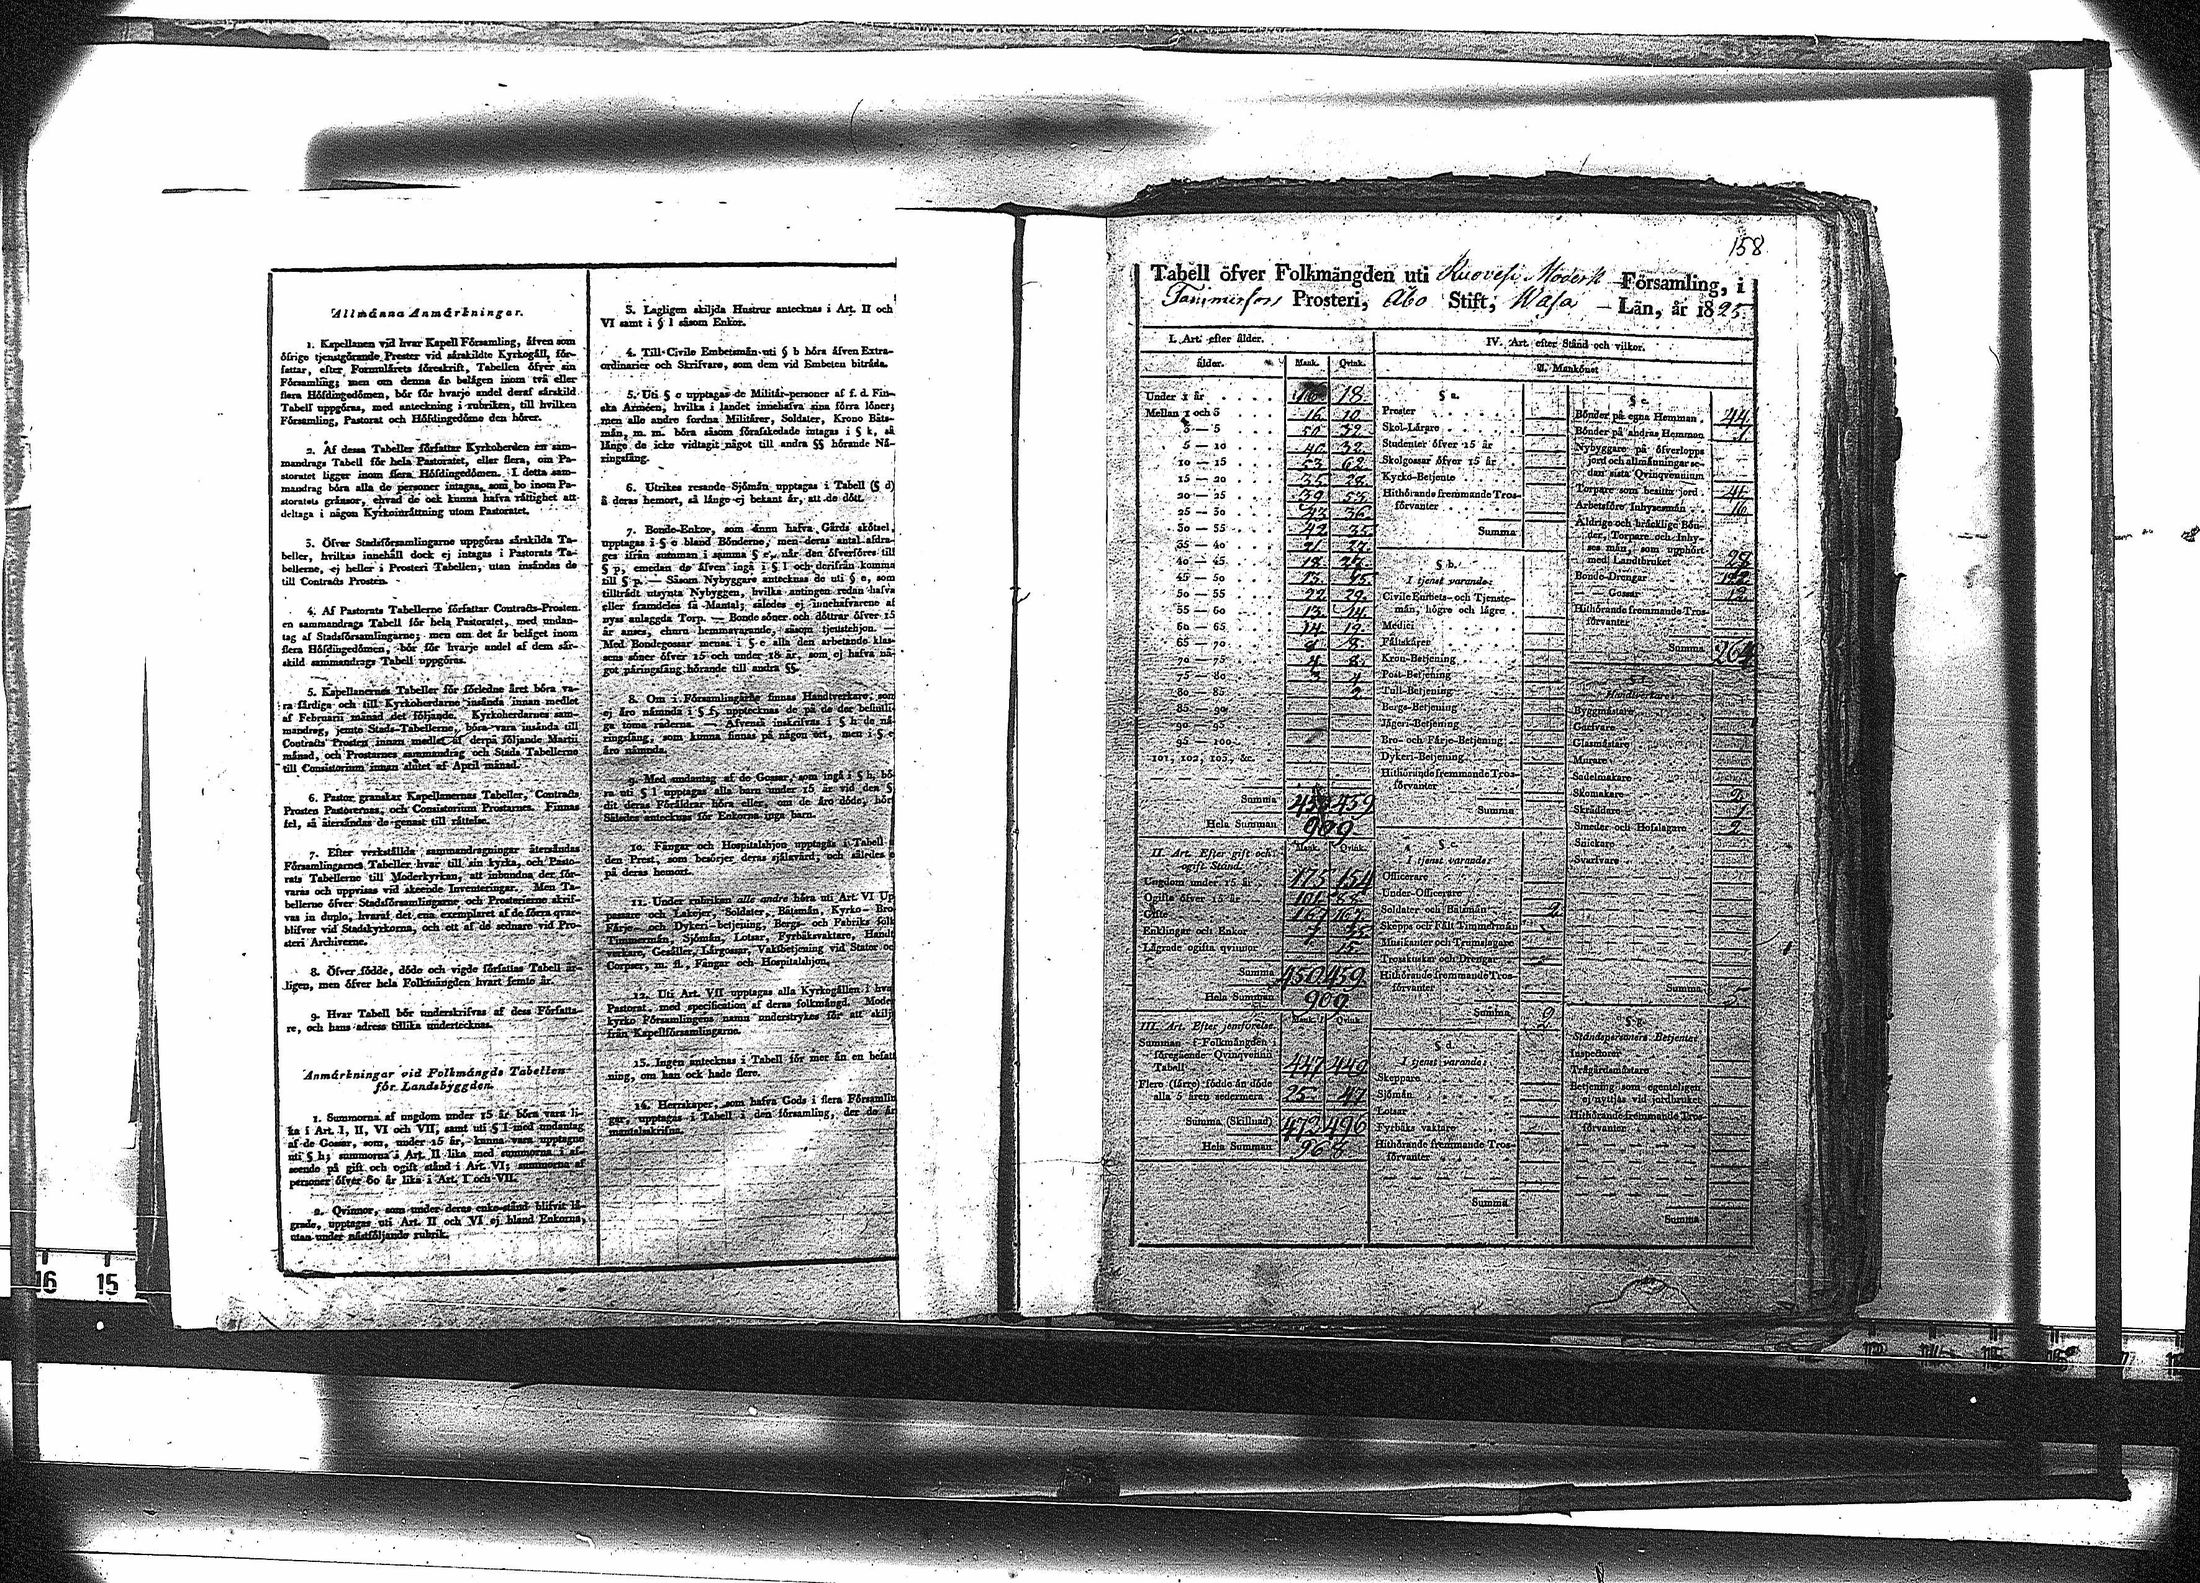 Allmänna Anmärkningar.
1. Kapellanen vid hvar Kapell Församling, äfven som
öfrige tjenstgörande Prester vid särskildte Kyrkogäll, för-
fattar, efter Formulärets föreskrift, Tabellen öfver sin
Församling; men om denna är belägen inom två eller
flera Höfdingedömen, bör för hvarje andel deraf särskild
Tabell uppgöras, med anteckning i rubriken, till hvilken
Församling, Pastorat och Höfdingedöme den hörer.
2. Af dessa Tabeller författar Kyrkoherden en sam-
mandrags Tabell för hela Pastoratet, eller flera, om Pa-
storatet ligger inom flera Höfdingedömen. I detta sam-
mandrag böra alla de personer intagas, som bo inom Pa-
storatets gränsor, ehvad de ock kunna hafva rättighet att
deltaga i någon Kyrkoinrättning utom Pastoratet.
3. Öfver Stadsförsamlingarne uppgöras särskilda Ta-
beller, hvilkas innehåll dock ej intages i Pastorats Ta-
bellerne, ej heller i Prosteri Tabellen, utan insändas de
till Contracts Prosten.
4. Af Pastorats Tabellerne författar Contracts-Prosten
en sammandrags Tabell för hela Pastoratet, med undan-
tag af Stadsförsamlingarne; men om det är beläget inom
flera Höfdingedömen, bör för hvarje andel af dem sär-
skild sammandrags Tabell uppgöras.
5. Kapellanernes Tabeller för förledne året böra va-
ra färdiga och till Kyrkoherdarne insända innan medlet
af Februarii månad det följande. Kyrkoherdarnes sam-
mandrag, jemte Stads-Tabellerne, böra vara insända till
Contracts Prosten innan medlet af derpå följande Martii
månad, och Prostarnes sammandrag och Stads Tabellerne
till Consistorium innan slutet af April månad.
6. Pastor granskar Kapellanernas Tabeller, Contracts
Prosten Pastorernas, och Consistorium Prostarnes. Finnas
fel, så återsändas de genast till rättelse.
7. Efter verkställda sammandragningar återsändas
Församlingarnes Tabeller hvar till sin kyrka, och Pasto-
rats Tabellerne till Moderkyrkan, att inbundna der för-
varas och uppvisas vid skeende Inventeringar. Men Ta-
bellerne öfver Stadsförsamlingarne och Prosterierne skrif-
vas in duplo, hvaraf det ena exemplaret af de förra qvar-
blifver vid Stadskyrkorna, och ett af de sednare vid Pro-
steri Archiverne.
8. Öfver födde, döde och vigde författas Tabell år-
ligen, men öfver hela Folkmängden hvart femte år.
9. Hvar Tabell bör underskrifvas af dess Författa-
re, och hans adress tillika undertecknas.
Anmärkningar vid Folkmängds Tabellen
för Landsbyggden.
1. Summorna af ungdom under 15 år böra vara li-
ka i Art. I, II, VI och VII, samt uti § l med undantag
af de Gossar, som, under 15 år, kunna vara upptagne
uti § h; summorna i Art. II lika med summorna i af-
seende på gift och ogift stånd i Art. VI; summorna af
personer öfver 60 år lika i Art. I och VII.
2. Qvinnor, som under deras enke-stånd blifvit lä-
grade, upptagas uti Art. II och VI ej bland Enkorna,
utan under nästföljande rubrik.
3. Lagligen skiljda Hustrur antecknas i Art. II och
VI samt i § l såsom Enkor.
4. Till Civile Embetsmän uti § b höra äfven Extra-
ordinarier och Skrifvare, som dem vid Embeten biträda.
5. Uti § c upptagas de Militär-personer af f. d. Fin-
ska Arméen, hvilka i landet innehafva sina förra löner;
men alle andre fordna Militärer, Soldater, Krono Båts-
män, m. m. böra såsom förafskedade intagas i § k, så
länge de icke vidtagit något till andra §§ hörande Nä-
ringsfång.
6. Utrikes resande Sjömän upptagas i Tabell (§ d)
å deras hemort, så länge ej bekant är, att de dött.
7. Bonde-Enkor, som ännu hafva Gårds skötsel,
upptagas i § e bland Bönderne, men deras antal afdra-
ges ifrån summan i summa § e, när den öfverföres till
§ p, emedan de äfven ingå i § l och derifrån komma
till § p. — Såsom Nybyggare antecknas de uti § e, som
tillträdt utsynta Nybyggen, hvilka antingen redan hafva
eller framdeles få Mantal; således ej innehafvarene af
nyss anlaggda Torp. — Bonde söner och döttrar öfver 15
år anses, ehuru hemmavarande, såsom tjenstehjon. —
Med Bondegossar menas i § e alla den arbetande klas-
sens söner öfver 15 och under 18 år, som ej hafva nå-
got näringsfång hörande till andra §§.
8. Om i Församlingarne finnas Handtverkare, som
ej äro nämnda i § f, upptecknas de på de der befintli-
ga toma raderna. — Äfvenså inskrifvas i § h de nä-
ringsfång, som kunna finnas på någon ort, men i § e
äro nämnda.
9. Med undantag af de Gossar, som ingå i § h, bö-
ra uti § l upptagas alla barn under 15 år vid den §
dit deras Föräldrar höra eller, om de äro döde, hört
Således antecknas för Enkorna inga barn.
10. Fångar och Hospitalshjon upptagas i Tabell
den Prest, som besörjer deras själavård; och således e
på deras hemort.
11. Under rubriken alle andre höra uti Art. VI Up
passare och Lakejer, Soldater, Båtsmän, Kyrko- Bro
Färje- och Dykeri-betjening, Bergs- och Fabriks folk
Timmermän, Sjömän, Lotsar, Fyrbåksvaktare, Handt
verkare, Gesäller, Lärgossar, Vaktbetjening vid Stater oc
Corpser, m. fl., Fångar och Hospitalshjon.
12. Uti Art. VII upptagas alla Kyrkogällen i hva
Pastorat, med specification af deras folkmängd. Moder
kyrko Församlingens namn understrykes för att skilj
från Kapellförsamlingarne.
13. Ingen antecknas i Tabell för mer än en befatt
ning, om han ock hade flere.
14. Herrskaper, som hafva Gods i flera Församlin
gar, upptagas i Tabell i den församling, der de är
mantalsskrifna.
158
Tabell öfver Folkmängden uti Ruovesi Moderk Församling, i
Tammerfors Prosteri, Åbo Stift, Wasa Län, år 1825.
I. Art. efter ålder.
IV. Art. efter Stånd och vilkor.
ålder. Mank. Qvink.
A. Mankönet
Under 1 år 18
Mellan 1 och 3 16 10
3 — 5 50 32
5 — 10 40 32
10 — 15 53 62
15 — 20 35 28
20 — 25 39 53
25 — 30 43 36
30 — 35 42 35
35 — 40 21 27
40 — 45 18
45 — 50 13
50 — 55 22 29
55 — 60 13 14
60 — 65 14 19
65 — 70 8
70 — 75 4 8
75 — 80 4
80 — 85 2
85 — 90
90 — 95
95 — 100
101, 102, 103, &c.
Summa 450 459
Hela Summan 909
II. Art. Efter gift och
ogift Stånd. Mank. Qvink.
Ungdom under 15 år 175 154
Ogifte öfver 15 år 101 88
Gifte 167 167
Enklingar och Enkor 7 35
Lägrade ogifta qvinnor 15
Summa 450 459
Hela Summan 909
III. Art. Efter jemförelse. Mank. Qvink.
Summan af Folkmängden i
föregående Qvinqvennii
Tabell 447 449
Flere (färre) födde än döde
alla 5 åren sedermera 25 47
Summa (Skillnad) 472 496
Hela Summan 968
§ a.
Prester
Skol-Lärare
Studenter öfver 15 år
Skolgossar öfver 15 år
Kyrko-Betjente
Hithörande fremmande Tros-
förvanter
Summa
§ b.
I tjenst varande:
Civile Embets- och Tjenste-
män, högre och lägre
Medici
Fältskärer
Kron-Betjening
Post-Betjening
Tull-Betjening
Bergs-Betjening
Jägeri-Betjening
Bro- och Färje-Betjening
Dykeri-Betjening
Hithörande fremmande Tros-
förvanter
Summa
§ c.
I tjenst varande:
Officerare
Under-Officerare
Soldater och Båtsmän 2
Skepps och Fält Timmermän
Musikanter och Trumslagare
Trosskuskar och Drengar
Hithörande fremmande Tros-
förvanter
Summa 2
§ d.
I tjenst varande:
Skeppare
Sjömän
Lotsar
Fyrbåks vaktare
Hithörande fremmande Tros-
förvanter
Summa
§ e.
Bönder på egna Hemman 44
Bönder på andras Hemman 1
Nybyggare på öfverlopps
jord och allmänningar se-
dan sista Qvinqvennium
Torpare som besitta jord 41
Arbetsföre Inhysesmän 16
Åldrige och bräcklige Bön-
der, Torpare och Inhy-
ses män, som upphört
med Landtbruket 28
Bonde-Drengar 122
— Gossar 12
Hithörande fremmande Tros-
förvanter
Summa 264
§ f.
Handtverkare:
Byggmästare
Garfvare
Glasmästare
Murare
Sadelmakare
Skomakare 2
Skräddare 1
Smeder och Hofslagare 2
Snickare
Svarfvare
Summa 5
§ g.
Ståndspersoners Betjente:
Inspectorer
Trägårdsmästare
Betjening som egenteligen
ej nyttjas vid jordbruket
Hithörande fremmande Tros-
förvanter
Summa
16 15